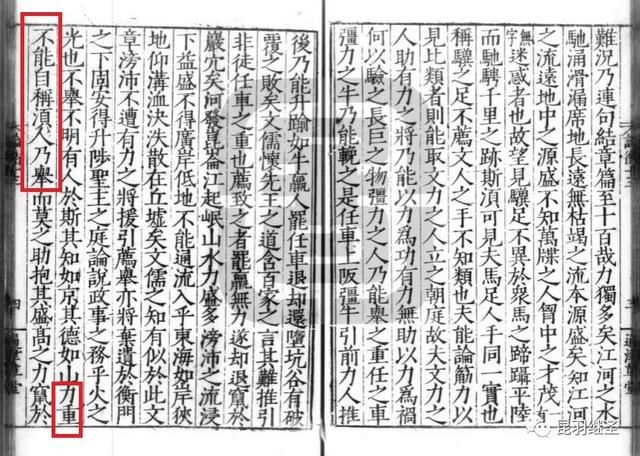 難況乃連句結章篇至十百哉力獨多矣江河之水
馳涌滑漏席地長遠無枯竭之流本源盛矣知江河
之流遠地中之源盛不知萬牒之人胷中之才茂有
無迷惑者也故望見驥足不異於衆馬之蹄躡平陸
而馳騁千里之跡斯湏可見夫馬足人手同一實也
稱驥之足不薦文人之手不知類也夫能論筋力以
見比類者則能取文力之人立之朝庭故夫文力之
人助有力之將乃能以力為功有力無助以力為禍
何以驗之長巨之物彊力之人乃能舉之重任之車
彊力之牛乃能輓之是任車上阪彊牛引前力人推
後乃能升踰如牛羸人罷任車退却還墮坑谷有破
覆之敗矣文儒懷先王之道含百家之言其難推引
非徒任車之重也薦致之者罷羸無力遂却退竄於
巖穴矣河發崑崙江起岷山水力盛多滂沛之流浸
下益盛不得廣岸低地不能通流入乎東海如岸狹
地仰溝洫決泆散在丘墟矣文儒之知有似於此文
章滂沛不遭有力之將援引薦舉亦將棄遺於衡門
之下固安得升陟聖王之庭論說政事之務乎火之
光也不舉不明有人於斯其知如京其德如山力重
不能自稱湏人乃舉而莫之助抱其盛髙之力竄於
昆羽继圣